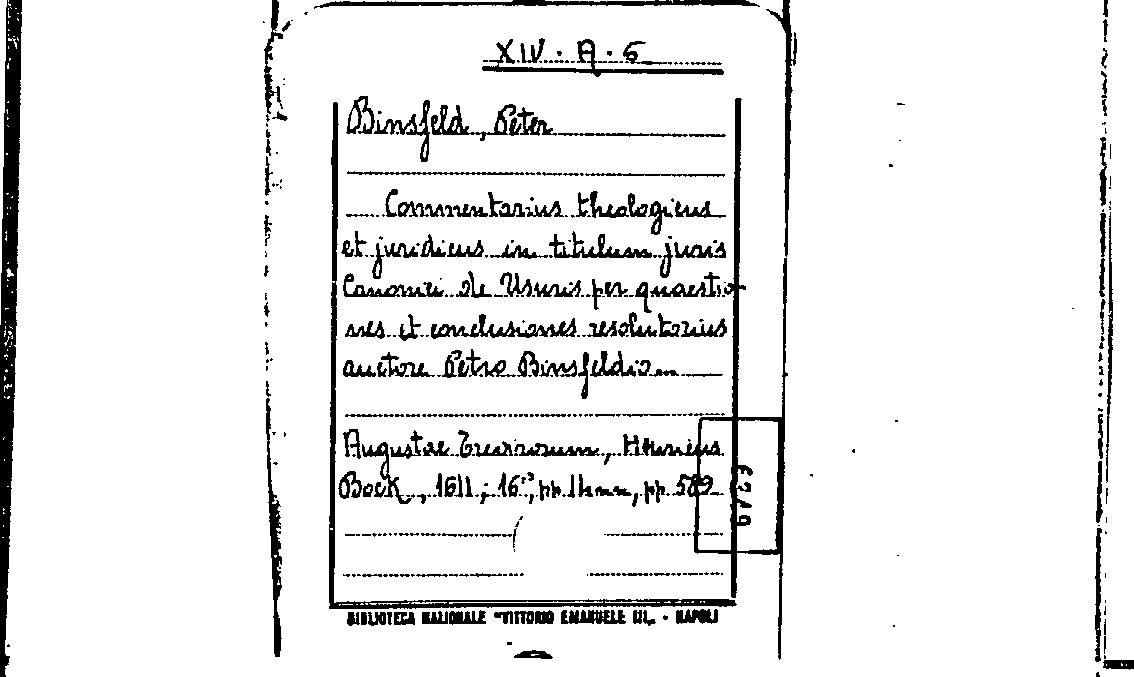 XIV. A. 6
Binsfeld, Peter
Commentarius theologicus
et juridicus in titulum juris
Canonici de Usuris per quaestio-
nes et conclusiones resolutorius
auctore Petro Binsfeldio...
Augustae Trevirorum, Henricus
Bock, 1611; 16°, pp. 14 nn, pp. 589
BIBLIOTECA NAZIONALE "VITTORIO EMANUELE III" - NAPOLI